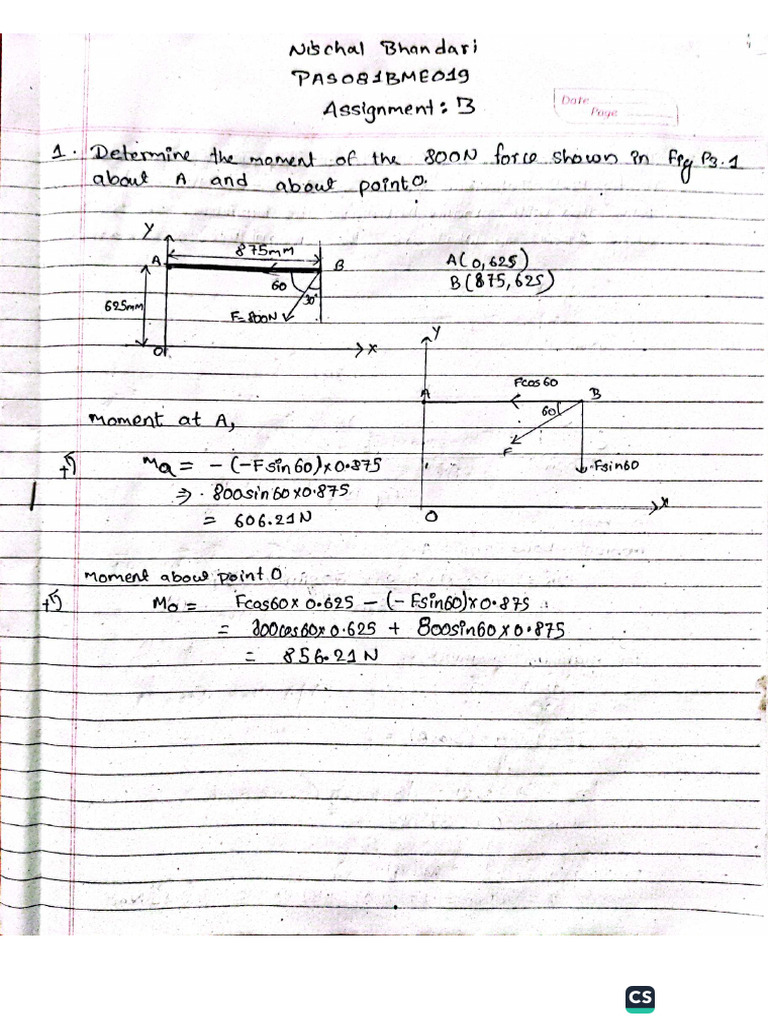 Nischal Bhandari
PAS081BME019
Assignment: 3
Date
Page
1. Determine the moment of the 800N force shown in Fig P3.1
about A and about point O.
Y
875mm
A
B
60
30°
625mm
F=800N
O
x
A(0,625)
B(875,625)
Y
Fcos60
A
B
60
F
Fsin60
O
x
Moment at A,
+↺ Ma = - (-Fsin60)×0.875
⇒ 800sin60×0.875
= 606.21N
Moment about point O
+↺ Mo = Fcos60×0.625 - (-Fsin60)×0.875
= 800cos60×0.625 + 800sin60×0.875
= 856.21N
CS